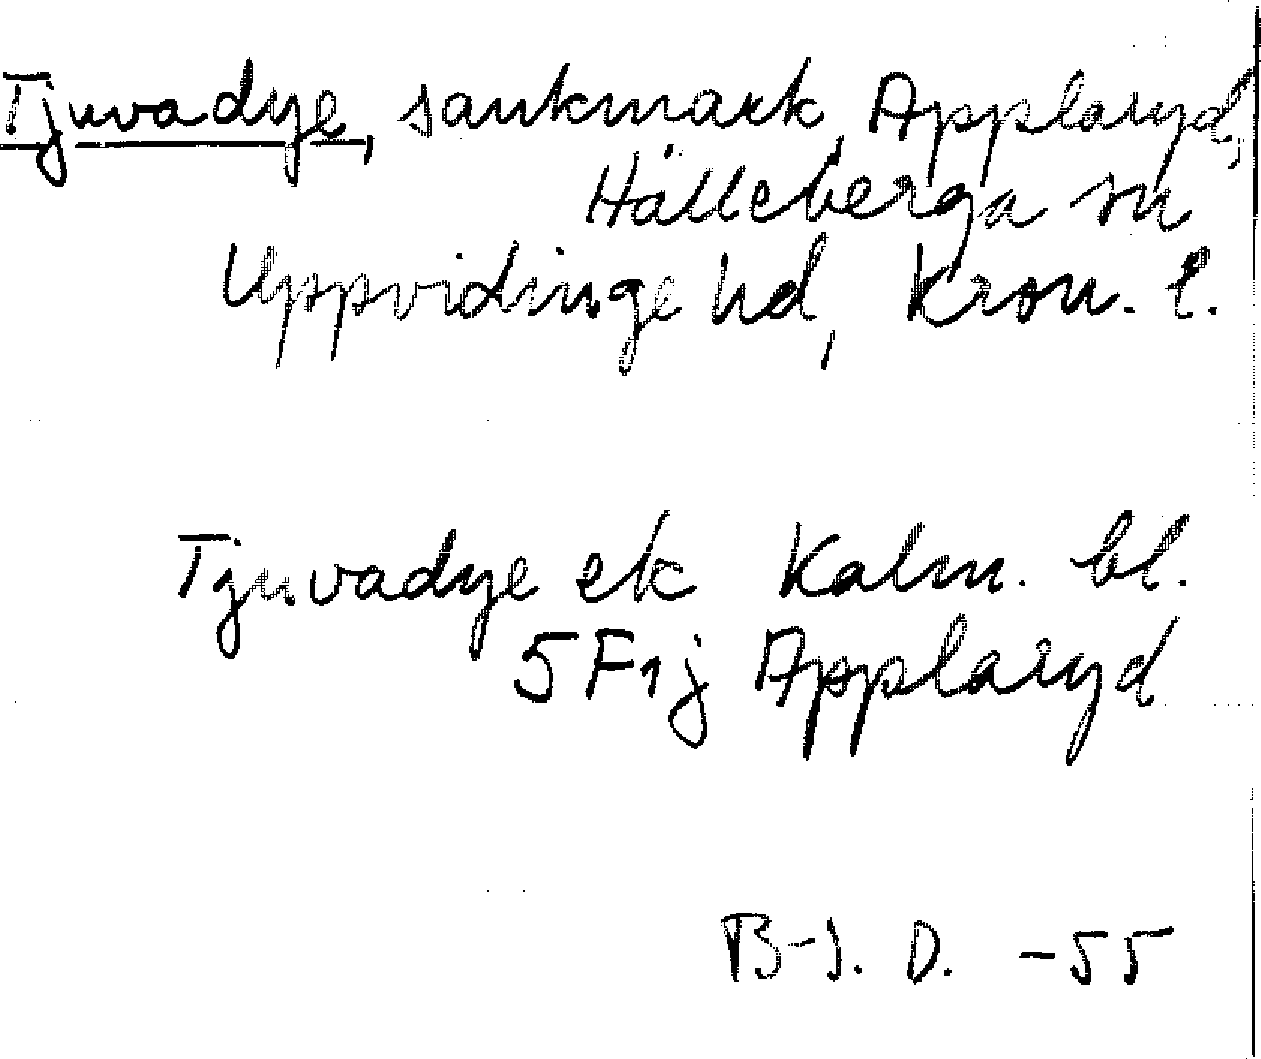 Tjuvadye, sankmark, Applaryd,
Hälleberga sn
Uppvidinge hd, Kron. l.
Tjuvadye ek Kalm. bl.
5F1j Applaryd
B-S. D. -55